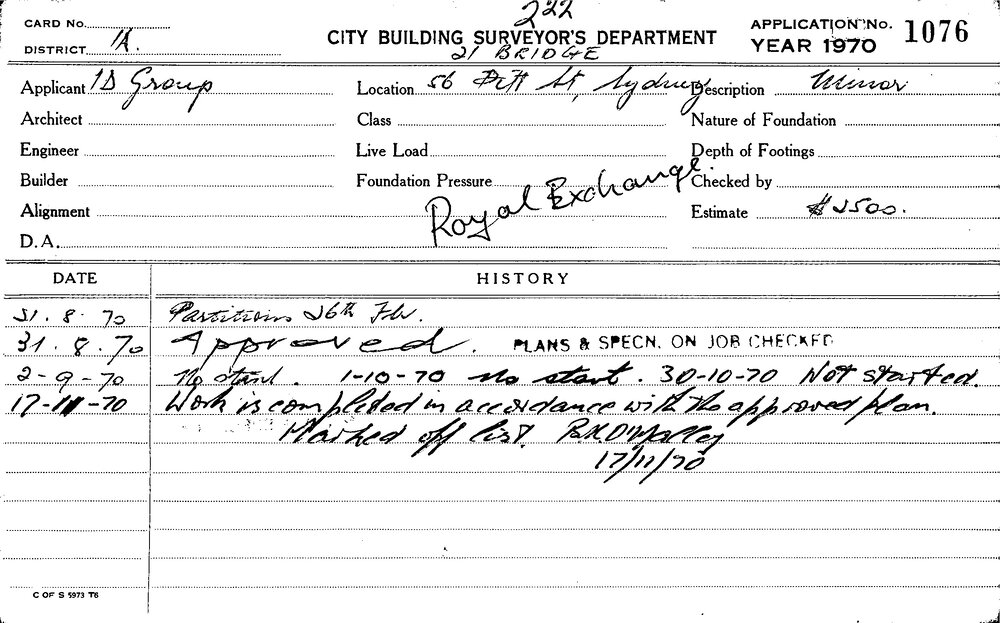 222
CARD No.
CITY BUILDING SURVEYOR'S DEPARTMENT
APPLICATION No. 1076
DISTRICT 1A.
21 BRIDGE
YEAR 1970
Applicant ID Group
Location 56 Pitt St, Sydney
Description Minor
Architect
Class
Nature of Foundation
Engineer
Live Load
Depth of Footings
Builder
Foundation Pressure
Royal Exchange.
Checked by
Alignment
Estimate $2500.
D.A.
DATE HISTORY
21.8.70 Partitions 26th Flr.
31.8.70 Approved. PLANS & SPECN. ON JOB CHECKED
2-9-70 No start. 1-10-70 no start. 30-10-70 Not started.
17-11-70 Work is completed in accordance with the approved plan.
Marked off list. O'Malley
17/11/70
C OF S 5973 T6